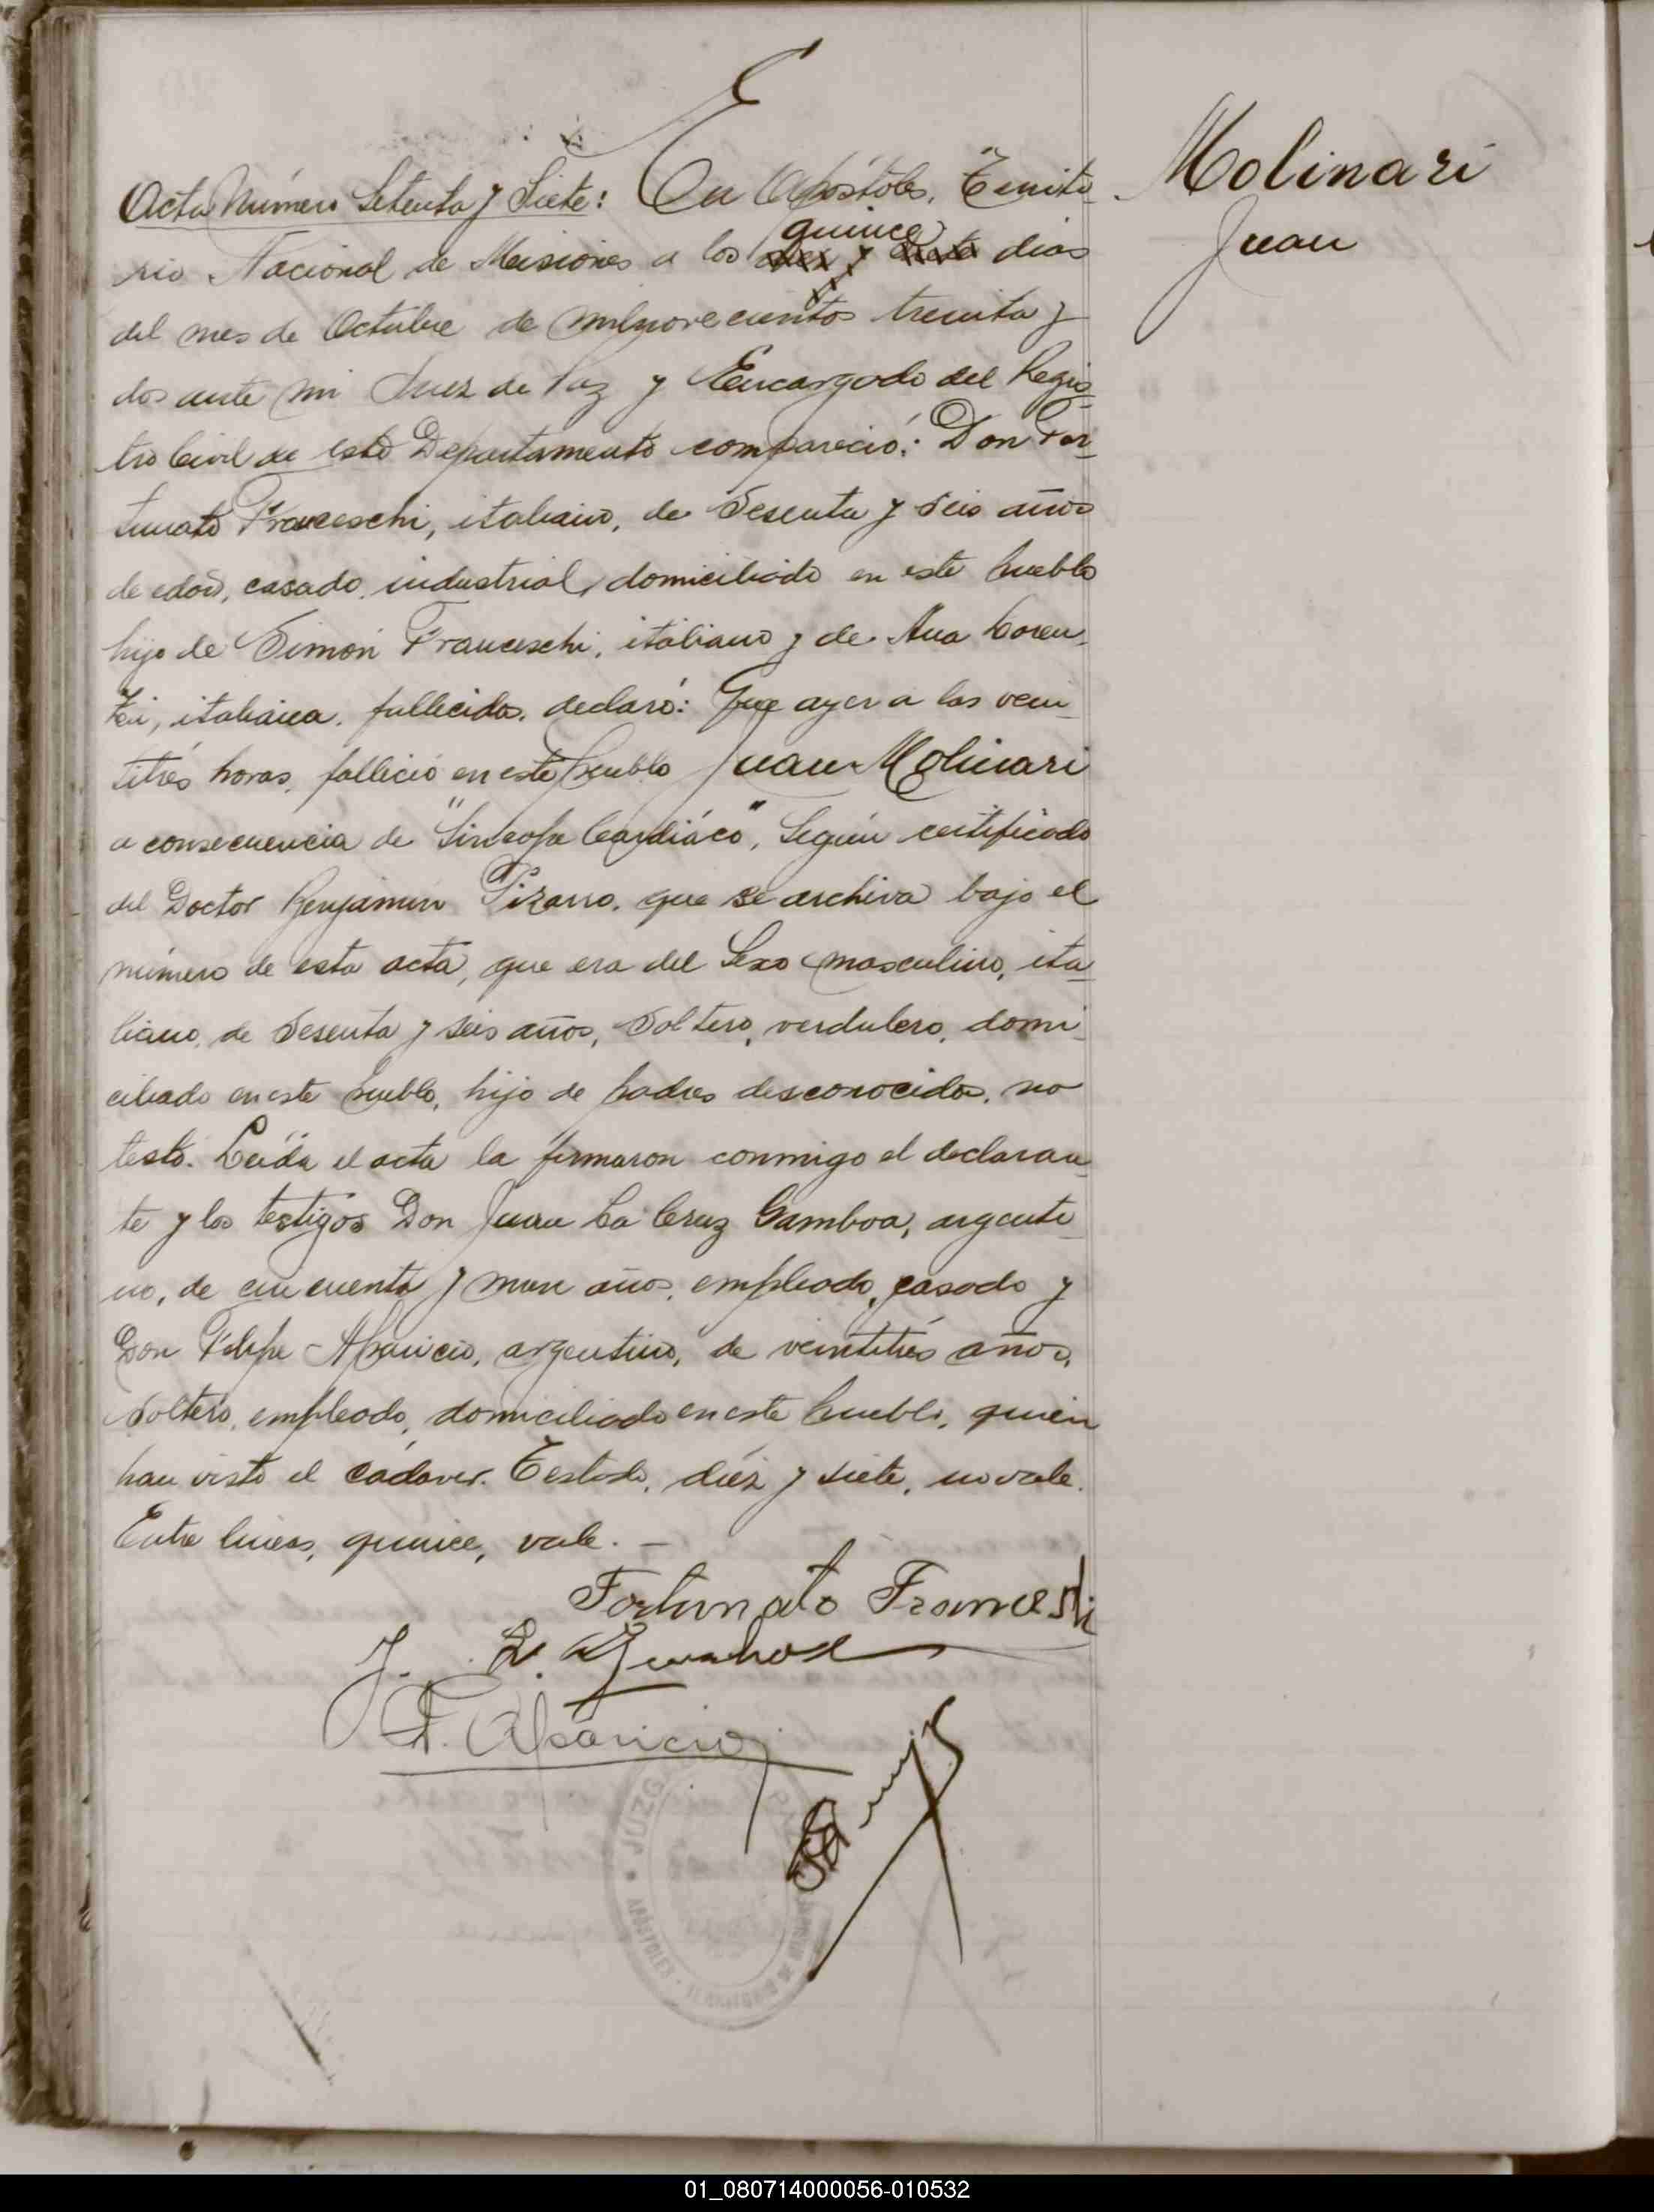 Acta Número Setenta y Siete: En Apóstoles, Territo-
rio Nacional de Misiones a los quince
diez y siete dias
del mes de Octubre de mil novecientos treinta y
dos ante mi Juez de Paz y Encargado del Regis-
tro Civil de este Departamento compareció: Don For-
tunato Franceschi, italiano, de Sesenta y Seis años
de edad, casado, industrial, domiciliado en este pueblo
hijo de Simón Franceschi, italiano y de Ana Loren-
zi, italiana, fallecidos, declaró: Que ayer a las vein-
titrés horas, falleció en este pueblo Juan Molinari
a consecuencia de "Sincope Cardiáco", Según certificado
del Doctor Benjamin Pizarro, que se archiva bajo el
número de esta acta, que era del Sexo masculino, ita-
liano, de Sesenta y seis años, Soltero, verdulero, domi-
ciliado en este pueblo, hijo de padres desconocidos, no
testó. Leída el acta la firmaron conmigo el declaran-
te y los testigos Don Juan La Cruz Gamboa, argenti-
no, de cincuenta y años, empleado, casado y
Don Felipe Aparicio, argentino, de veintitrés años,
Soltero, empleado, domiciliado en este pueblo, quien
han visto el cádaver. Testado, diéz y siete, no vale.
Entre lineas, quince, vale. -
Fortunato Franceschi
J. L.
F. Aparicio
JUZG
APÓSTOLES - TERRITORIO DE MISIONES
Molinari
Juan
01_080714000056-010532